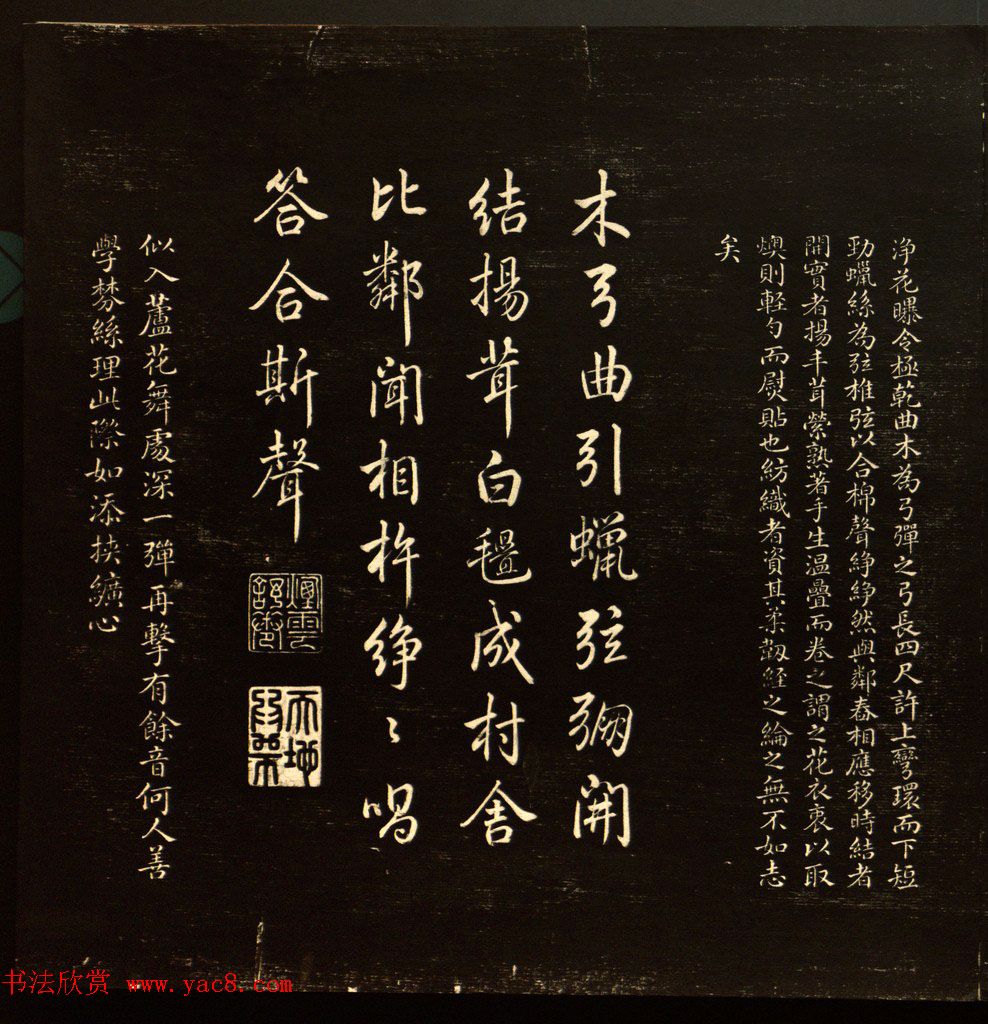 淨花曝令極乾曲木為弓彈之弓長四尺許上彎環而下短
勁蠟絲為弦椎弦以合棉聲錚錚然與鄰舂相應移時結者
開實者揚丰茸縈熟著手生温疊而卷之謂之花衣衷以取
燠則輕勻而熨貼也紡織者資其柔韌經之綸之無不如志
矣
木弓曲引蠟弦弸開
結揚茸白氊成村舍
比鄰聞相杵錚〻唱
答合斯聲
煙雲
舒卷
似入蘆花舞處深一彈再擊有餘音何人善
學棼絲理此際如添挾纊心
书法欣赏 www.yac8.com